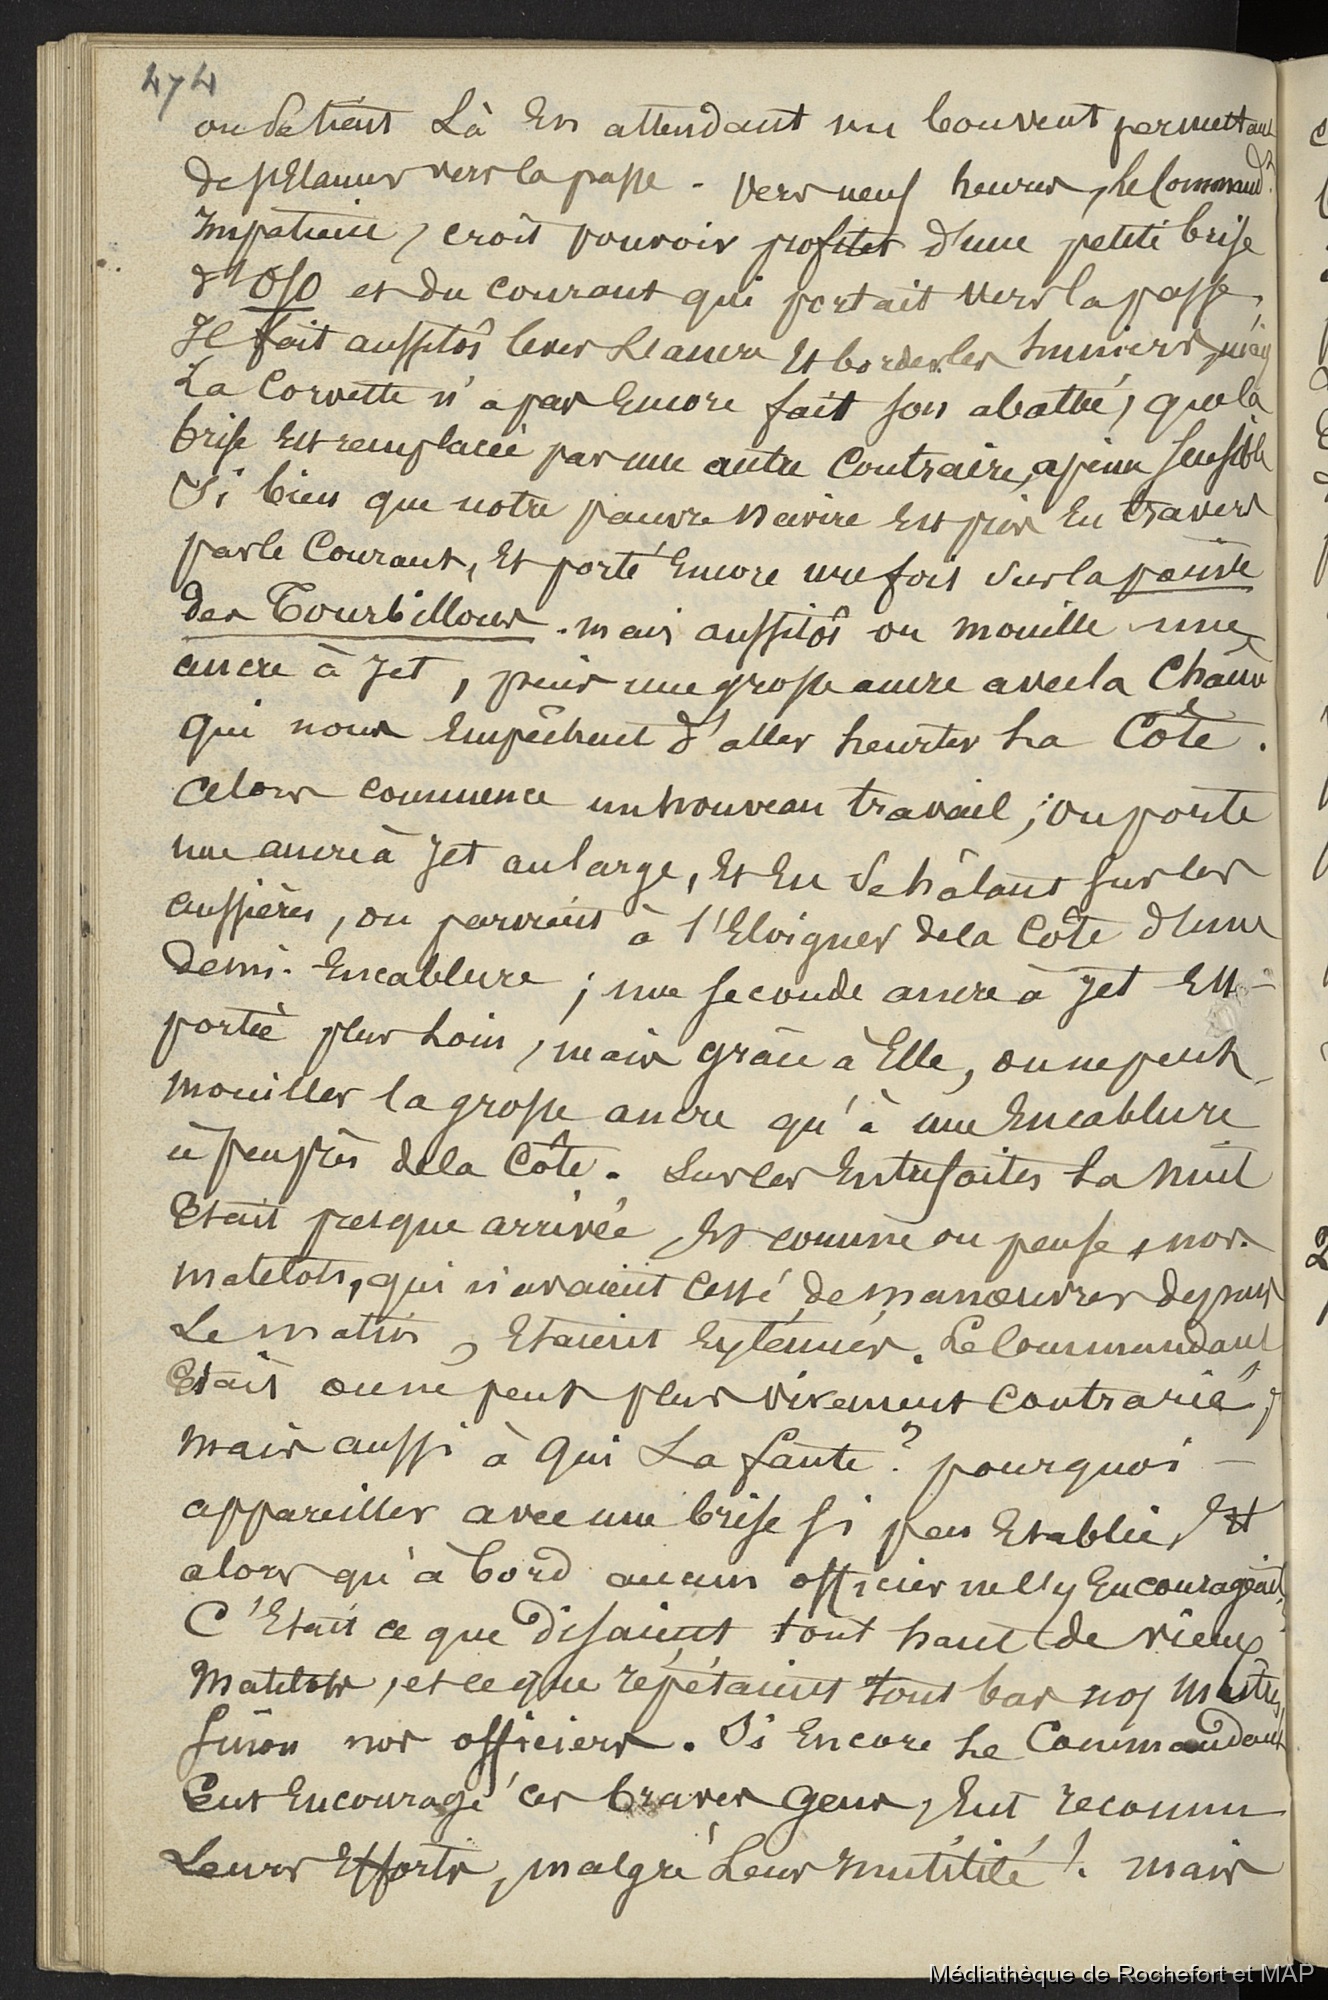 474
on se tient Là En attendant un bon vent permettant
de s'Elancer vers la passe - vers neuf heures, Le Command.t
Impatient, croit pouvoir profiter d'une petite brise
d'OSO et du courant qui portait vers la passe,
Il fait aussitôt lever L'ancre Et border les huniers, mais
La Corvette n'a pas Encore fait son abattée, que la
brise Est remplacée par une autre Contraire, a peine sensible
Si bien que notre pauvre Navire Est pris En travers
par le Courant, Et porté Encore une fois sur la pointe
des Tourbillons. mais aussitôt on mouille une
ancre à Jet, puis une grosse ancre avec la Chaîne
Qui nous Empêchent d'aller heurter La Côte.
alors commence un Nouveau travail; on porte
une ancre à Jet au large, Et En se hâlant sur les
aussières, on parvient à l'Eloigner de la Côte d'une
demi-Encablure; une seconde ancre à Jet Est -
portée plus Loin, mais grâce à Elle, on ne peut
mouiller la grosse ancre qu'à une Encablure
à peu près de la Côte. Sur ces Entrefaites La Nuit
Etait presque arrivée, Et comme on pense, nos
matelots, qui n'avaient cessé de manœuvrer depuis
Le matin, Etaient Exténués. Le Commandant
Etait on ne peut plus vivement Contrarié,
Mais aussi à Qui La faute? pourquoi -
appareiller avec une brise si peu Etablie, Et
alors qu'à bord aucun officier ne l'y Encourageait.
C'Etait ce que disaient tout haut de vieux
Matelots, et ce que répétaient tout bas nos Maîtres,
sinon nos officiers. Si Encore Le Commandant
Eut Encouragé ces braves Gens, Eut reconnu
Leurs Efforts, malgré Leur Inutilité! mais
Médiathèque de Rochefort et MAP